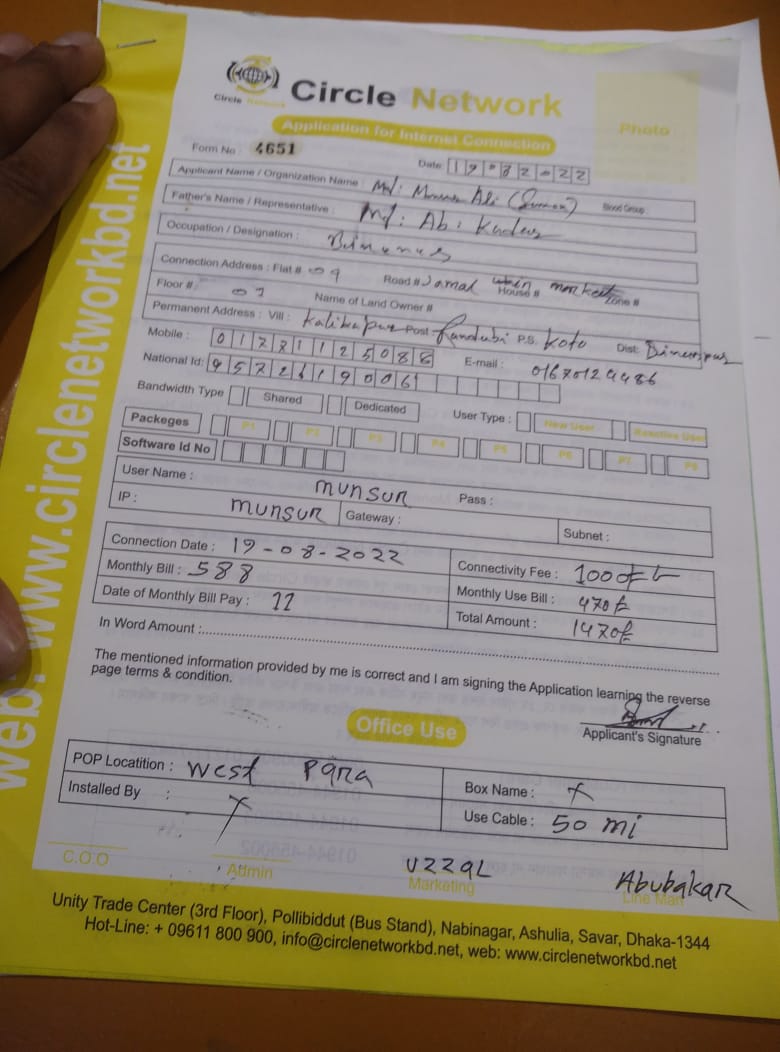 Circle Network
Circle Network
Application for Internet Connection
Photo
Form No : 4651
Date: 19082022
Applicant Name / Organization Name : Md: Ali Blood Group :
Father's Name / Representative : Md: Ab: Kader
Occupation / Designation :
Connection Address : Flat # 09 Road # Jamal House # market Zone #
Floor #: Name of Land Owner #
Permanent Address : Vill : Kalikapur Post: P.S. Koto Dist:
Mobile : E-mail : 01670124486
National Id: 9572619006
Bandwidth Type Shared Dedicated User Type : New User Reactive User
Packeges P1 P2 P3 P4 P5 P6 P7 P8
Software Id No
User Name : munsur Pass :
IP : munsur Gateway : Subnet :
Connection Date : 19-08-2022 Connectivity Fee : 1000
Monthly Bill : 588 Monthly Use Bill : 470
Date of Monthly Bill Pay : Total Amount : 1470
In Word Amount :
The mentioned information provided by me is correct and I am signing the Application learning the reverse
page terms & condition.
Applicant's Signature
Office Use
POP Locatition : West Para Box Name : x
Installed By : x Use Cable : 50 mi
C.O.O Admin UZZAL Marketing Abubakar Line Man
Unity Trade Center (3rd Floor), Pollibiddut (Bus Stand), Nabinagar, Ashulia, Savar, Dhaka-1344
Hot-Line: + 09611 800 900, info@circlenetworkbd.net, web: www.circlenetworkbd.net
web: www.circlenetworkbd.net